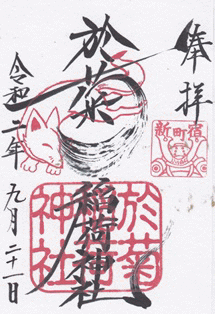 奉拝
新町宿
於菊
稲荷神社
於菊
稲荷
神社
令和二年九月二十一日